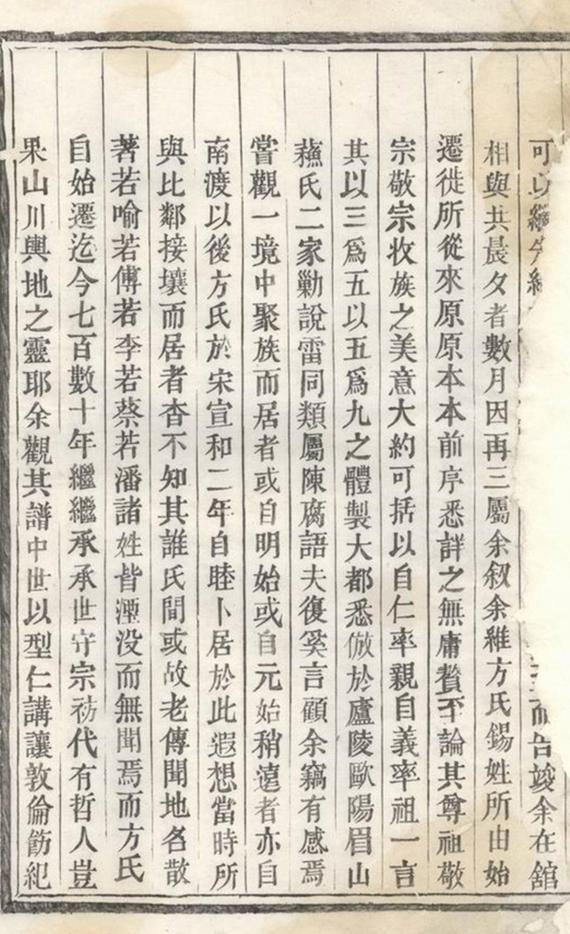 可以繼先緒而告竣余在舘
相與共晨夕者數月因再三屬余叙余維方氏錫姓所由始
遷徙所從來原原本本前序悉詳之無庸贅至論其尊祖敬
宗敬宗收族之美意大約可括以自仁率親自義率祖一言
其以三爲五以五爲九之體製大都悉倣於廬陵歐陽眉山
蘓氏二家勦說雷同類屬陳腐語夫復奚言顧余竊有感焉
嘗觀一境中聚族而居者或自明始或自元始稍遠者亦自
南渡以後方氏於宋宣和二年自睦卜居於此遐想當時所
與比鄰接壤而居者杳不知其誰氏間或故老傳聞地名散
著若喻若傅若李若蔡若潘諸姓皆湮没而無聞焉而方氏
自始遷迄今七百數十年繼繼承承世守宗祊代有哲人豈
果山川輿地之靈耶余觀其譜中世以型仁講讓敦倫飭紀